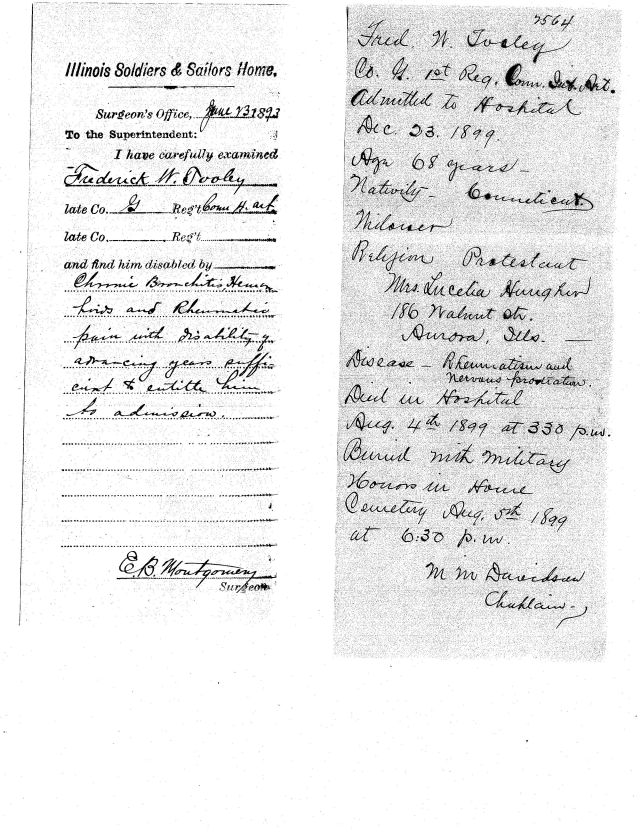 Illinois Soldiers & Sailors Home.
Surgeon's Office, June 23 1893
To the Superintendent:
I have carefully examined
Frederick W. Tooley
late Co. G Reg't Conn H. art
late Co. Reg't
and find him disabled by
Chronic Bronchitis, Hemor
hoids and Rheumatic
pain with disability of
advancing years suffi
cient to entitle him
to admission.
E. B. Montgomery
Surgeon
7564
Fred. W. Tooley
Co. G. 1st Reg. Conn. Art.
Admitted to Hospital
Dec. 23. 1899.
Age 68 years -
Nativity - Conneticut
Widower
Religion Protestant
Mrs. Lucetia
186 Walnut str.
Aurora, Ills. -
Disease - Rheumatism and
Nervous prostration.
Died in Hospital
Aug. 4th 1899 at 330 p.m.
Buried with Military
Honors in Home
Cemetery Aug. 5th 1899
at 6:30 p.m.
M M Davidson
Chaplain.